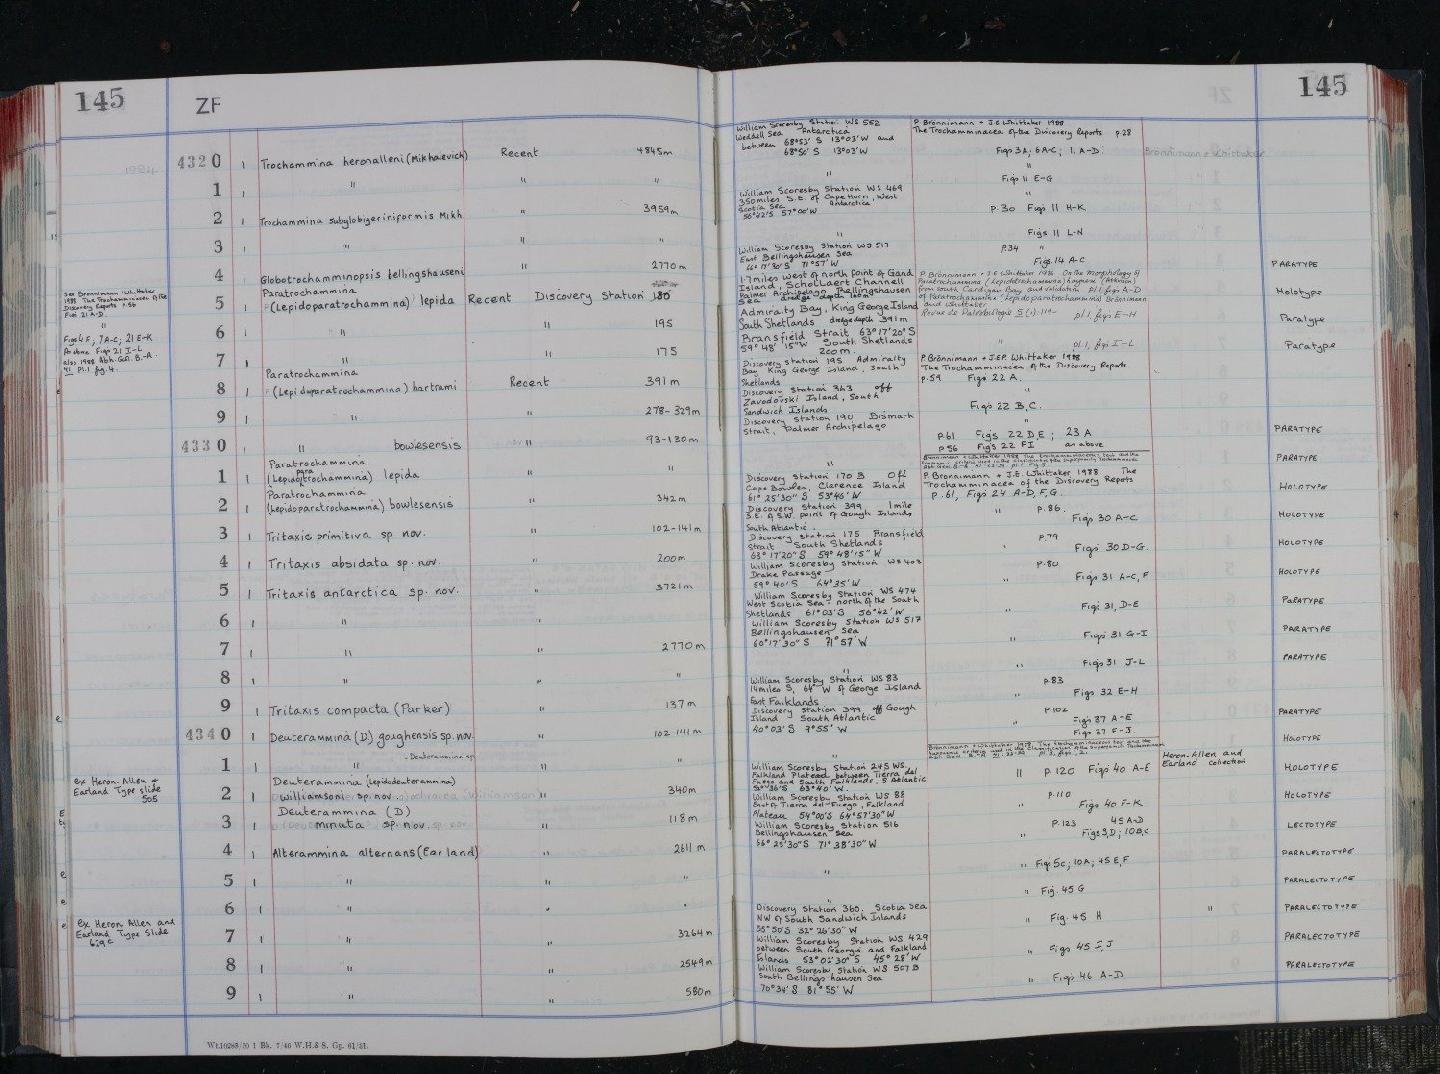 145
ZF
4320 1 Trochammina heronalleni (Mikhalevich) Recent 4845m
1 1 " " "
2 1 Trochammina subglobigeriniformis Mikh " 3959m
3 1 " " "
4 1 Globotrochamminopsis bellingshauseni " 2770m
See Brönnimann & Whittaker
1988 The Trochamminacea of the
Discovery Reports p.56
Figs 21 A-D.
Paratrochammina
5 1 (Lepidoparatrochammina) lepida Recent Discovery Station 180
"
6 1 " " 195
7 1 " " 175
Paratrochammina
8 1 (Lepidoparatrochammina) bartrami Recent 391m
9 1 " " 278-329m
4330 1 " bowlesensis " 93-130m
Paratrochammina
1 1 (Lepidoparatrochammina) lepida " "
Paratrochammina
2 1 (Lepidoparatrochammina) bowlesensis " 342m
3 1 Tritaxis primitiva sp nov. " 102-141m
4 1 Tritaxis absidata sp. nov. " 200m
5 1 Tritaxis antarctica sp. nov. " 3721m
6 1 " "
7 1 " " 2770m
8 1 " " "
9 1 Tritaxis compacta (Parker) " 137m
4340 1 Deuterammina (D) goughensis sp. nov. " 102-141m
1 1 " "
ex Heron. Allen &
Earland Type slide
505
Deuterammina (Lepidodeuterammina)
2 1 williamsoni sp. nov. " 340m
Deuterammina (D)
3 1 minuta sp. nov. " 118m
4 1 Alterammina alternans (Earland) " 2611m
5 1 " " "
6 1 " " "
ex Heron Allen and
Earland Type Slide
7 1 " " 3264m
8 1 " " 2549m
9 1 " " 580m
Wt.10288/20 1 Bk. 7/46 W.H.& S. Gp. 61/31.
145
William Scoresby Station WS 552
Weddell Sea Antarctica
between 68°53' S 13°03'W and
68°50' S 13°03'W
P. Brönnimann & J.E. Whittaker 1988
The Trochamminacea of the Discovery Reports p.28
Figs 3A; 6A-C; 11 A-D.
" " Figs 11 E-G
William Scoresby Station WS 469
350 miles S.E. of Cape Horn, West
Scotia Sea Antarctica
56°42'S 57°00'W
" p.30 Figs 11 H-K
" Figs 11 L-N
William Scoresby Station WS 517
East Bellingshausen Sea
p.34 " Figs.14 A-C PARATYPE
1.7 miles West of north Point of Gand
Island, Schollaert Channell
Palmer Archipelago Bellingshausen
Sea dredge depth 160m
P. Brönnimann & J.E. Whittaker 1986 On the Morphology of
Paratrochammina (Lepidoparatrochammina) haynesi (Atkinson)
from South Cardigan Bay and validation pl.1 figs A-D
of Paratrochammina (Lepidoparatrochammina) Brönnimann
and Whittaker
Holotype
Admiralty Bay, King George Island
South Shetlands dredge depth 391m
Revue de Paléobiologie 5(1) pl.1, figs E-H Paratype
Bransfield Strait 63°17'20"S
59°48'15"W South Shetlands
200m.
" pl.1, figs I-L Paratype
Discovery Station 195 Admiralty
Bay King George Island, South
Shetlands
P. Brönnimann & J.E.P. Whittaker 1988
The Trochamminacea of the Discovery Reports
p.59 Figs 22 A.
Discovery Station 363 off
Zavodovski Island, South
Sandwich Islands
" Figs 22 B,C.
Discovery Station 190 Bismark
Strait, Palmer Archipelago
" p.61 Figs 22 D,E ; 23 A PARATYPE
p56 Figs 22 F,I as above
" PARATYPE
Discovery Station 170 B Off
Cape Bowlen, Clarence Island
61°25'30"S 53°46'W
P. Brönnimann & J.E. Whittaker 1988 The
Trochamminacea of the Discovery Reports
p.61, Figs 24 A-D, F, G.
HOLOTYPE
Discovery Station 399 1 mile
S.E. of S.W. point of Gough Islands
South Atlantic.
" p.86. Figs 30 A-C HOLOTYPE
Discovery Station 175 Bransfield
Strait South Shetlands
63°17'20"S 59°48'15"W
p.79 Figs 30 D-G. HOLOTYPE
Drake Passage
59°40'S 64°35'W
p.80 Figs 31 A-C, F HOLOTYPE
William Scoresby Station WS 474
West Scotia Sea: north of the South
Shetlands 61°03'S 56°42'W
" Figs 31, D-E PARATYPE
William Scoresby Station WS 517
Bellingshausen Sea
60°17'30"S 71°57'W
" Figs 31 G-I PARATYPE
" " Figs 31 J-L PARATYPE
William Scoresby Station WS 83
14 miles S, 64° W of George Island
East Falklands
p.83 Figs 32 E-H
Discovery Station 399 off Gough
Island South Atlantic
40°03'S 7°55'W
" p.102 Figs 37 A-E PARATYPE
Figs 37 F-J HOLOTYPE
William Scoresby Station 245 WS.
Falkland Plateau between Tierra del
Fuego and South Falklands. S Atlantic
" p.120 Figs 40 A-E Heron-Allen and
Earland collection HOLOTYPE
William Scoresby Station WS 88
East of Tierra del-Fuego, Falkland
Plateau 54°00'S 64°57'30"W
p.110 Figs 40 F-K HOLOTYPE
William Scoresby Station 516
Bellingshausen Sea
" p.123 45 A-D LECTOTYPE
" " Figs 5C; 10A; 45 E,F PARALECTOTYPE
" Figs. 45 G PARALECTOTYPE
Discovery Station 360. Scotia Sea
NW of South Sandwich Islands
55°50'S 32°26'30"W
" Fig. 45 H " PARALECTOTYPE
William Scoresby Station WS 429
between South Georgia and Falkland
Islands
" Figs 45 I, J PARALECTOTYPE
William Scoresby Station WS 507 B
South Bellingshausen Sea
70°34'S 81°55'W
" Figs 46 A-D PARALECTOTYPE